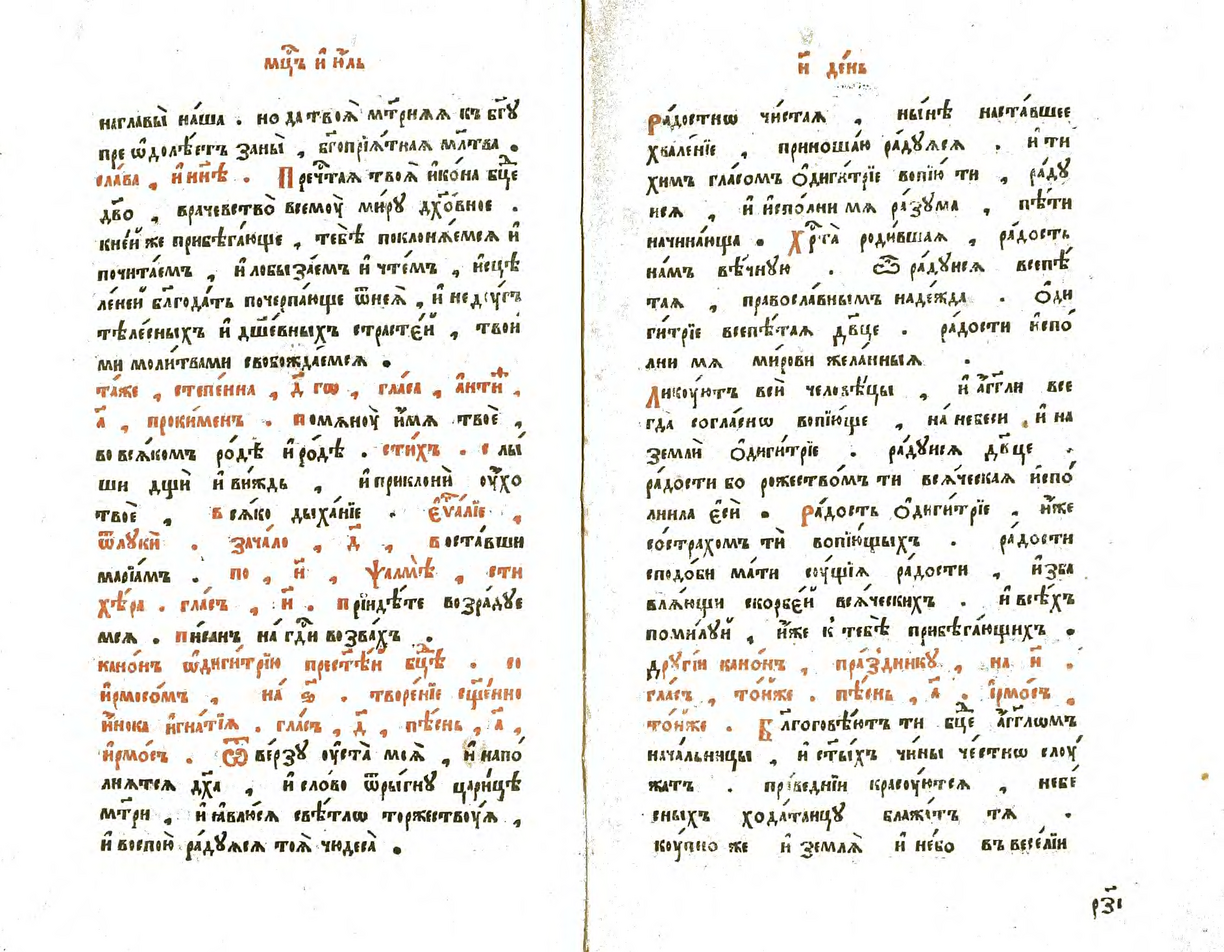 мцⷭ҇ъ и҆ і҆ю́ль
наглавы̀ на́ша . но да твоѧ̀ мт҃рнѧѧ къ бг҃ꙋ
пре ѡ҆долѣ́етъ за ны̀ , бг҃опрїѧ́тнаѧ мл҃тва .
сла́ва , и҆ нн҃ѣ . Пречⷭ҇таѧ твоѧ̀ и҆ко́на бц҃е
дв҃о , врачевство̀ всемоу̀ ми́рꙋ дх҃о́вное .
кне́й же прибѣга́юще , тебѣ̀ поклонѧ́емсѧ и҆
почита́емъ , и҆ лобыза́емъ и҆ чте́мъ , и҆сцѣ
ле́ней бл҃года́ть почерпа́юще ѿнеѧ̀ , и҆ недꙋ́гъ
тѣле́сныхъ и҆ дш҃е́вныхъ страсте́й , твои́
ми моли́твами свобожда́емсѧ .
та́же , степе́нна , д҃ гѡ , гла́са , а҆нтиⷴ ,
а҃ , проки́менъ . помѧноу̀ и҆́мѧ твоѐ ,
во всѧ́комъ ро́дѣ и҆ ро́дѣ . сти́хъ . слы́
ши дщѝ и҆ ви́ждь , и҆ приклонѝ оу҆́хо
твоѐ , всѧ́ко дыха́нїе . є҆ѵⷢ҇а́лїе ,
ѿ лꙋкѝ . зача́ло , д҃ , воста́вши
марїа́мъ . по , н҃ , ѱалмѣ̀ , сти
хѣ́ра . гла́съ , и҃ . прїидѣ́те возра́дꙋе
мсѧ . пи́санъ на гдⷭ҇и возва́хъ .
кано́нъ ѡ҆диги́трїю прест҃ѣ́й бц҃ѣ . со
і҆рмосо́мъ , на ѕ҃ . творе́нїе сщ҃е́нно
и҆́нока и҆гна́тїѧ . гла́съ , д҃ , пѣ́снь , а҃ ,
і҆рмо́съ . Ѿве́рзꙋ оу҆ста̀ моѧ̀ , и҆ напо́
лнѧтсѧ дх҃а , и҆ сло́во ѿры́гнꙋ цари́цѣ
мт҃ри , и҆ ꙗ҆влю́сѧ свѣ́тлѡ торжествꙋ́ѧ ,
и҆ воспою̀ ра́дꙋѧсѧ тоѧ̀ чюдеса̀ .
и҃ де́нь
Ра́достнѡ чи́стаѧ , ны́нѣ наста́вшее
хвале́нїе , приноша́ю ра́дꙋѧсѧ . и҆ ти́
химъ гла́сомъ ѻ҆диги́трїе вопїю́ ти , ра́дꙋ
исѧ , и҆ и҆спо́лни мѧ ра́зꙋма , пѣ́ти
начина́юща . Хрⷭ҇та̀ роди́вшаѧ , ра́дость
на́мъ вѣ́чнꙋю . Ѽ ра́дꙋисѧ всепѣ́
таѧ , правосла́внымъ наде́жда . ѻ҆ди
ги́трїе всепѣ́таѧ дв҃це . ра́дости и҆спо́
лни мѧ ми́рови жела́нныѧ .
Ликоу́ютъ всѝ человѣ́цы , и҆ а҆́гг҃ли все
гда̀ согла́снѡ вопїю́ще , на небесѝ , и҆ на
землѝ ѻ҆диги́трїе . ра́дꙋисѧ дв҃це .
ра́дости бо рожество́мъ ти всѧ́ческаѧ и҆спо́
лнила є҆сѝ . Ра́дость ѻ҆диги́трїе , и҆́же
состра́хомъ тѝ вопїю́щыхъ . ра́дости
сподо́би ма́ти соу́щїѧ ра́дости , и҆зба
влѧ́ющи скорбе́й всѧ́ческихъ . и҆ всѣ́хъ
поми́лꙋй , и҆́же к̾ тебѣ̀ прибѣга́ющихъ .
дрꙋгі́и кано́нъ , пра́зⷣникꙋ , на и҃ .
гла́съ , то́йже . пѣ́снь , а҃ . і҆рмо́съ ,
то́йже . Благоговѣ́ютъ ти бц҃е а҆́гг҃лѡмъ
нача́льницы , и҆ ст҃ы́хъ чи́ны че́стнѡ слоу́
жатъ . пра́веднїи красоу́ютсѧ , небе́
сныхъ хода́таицꙋ блажа́тъ тѧ .
коу́пно же и҆ землѧ̀ и҆ не́бо въ весе́лїи
рз҃і